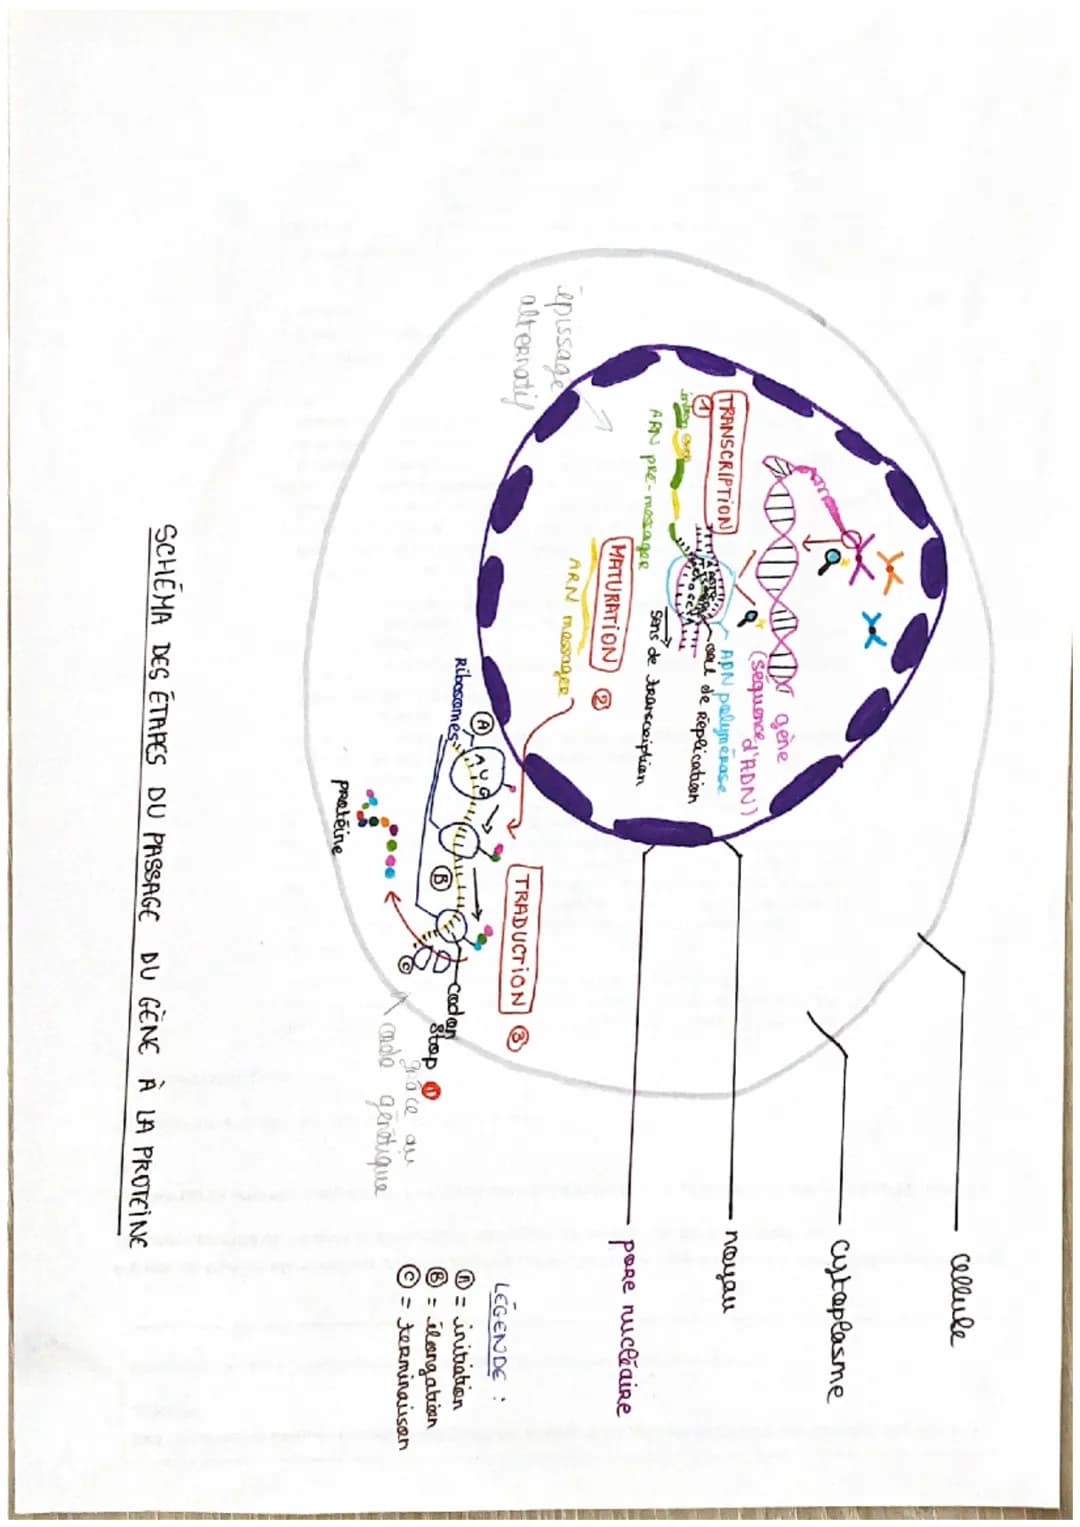 cellule
cytoplasme
noyau
pore nucléaire
gène
(séquence
d'ADN)
TRANSCRIPTION
1
ADN polymérase
œil de réplication
sens de transcription
ARN pré-messager
MATURATION 2
ARN messager
épissage
alternatif
TRADUCTION 3
A
AUG
Ribosomes
B
C
codon
stop
grâce au
code génétique
protéine
LÉGENDE :
A = initiation
B = élongation
C = terminaison
SCHÉMA DES ÉTAPES DU PASSAGE DU GÈNE À LA PROTEÏNE